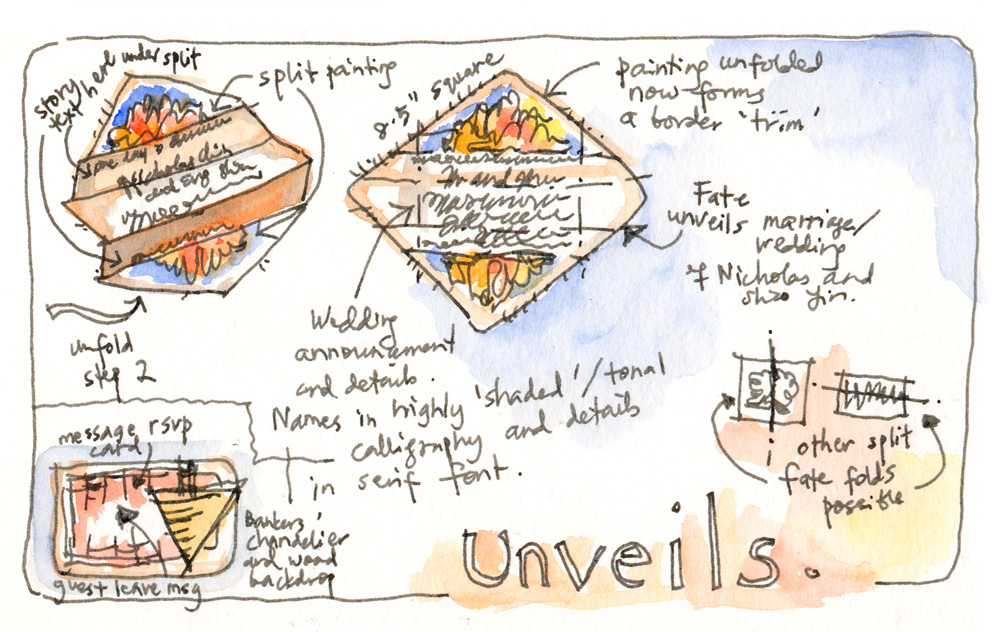 story
text here under split
split painting
8.5" square
painting unfolded
now forms
a border 'trim'
Some day
Nicholas
and
Fate
unveils marriage/
wedding
of Nicholas and
Shao Yin.
unfold
step 2
Wedding
announcement
and details.
Names in highly 'shaded'/tonal
calligraphy and details
in serif font.
message rsvp
card
Bankers'
chandelier
and wood
backdrop
guest leave msg
other split
fate folds
possible
Unveils.